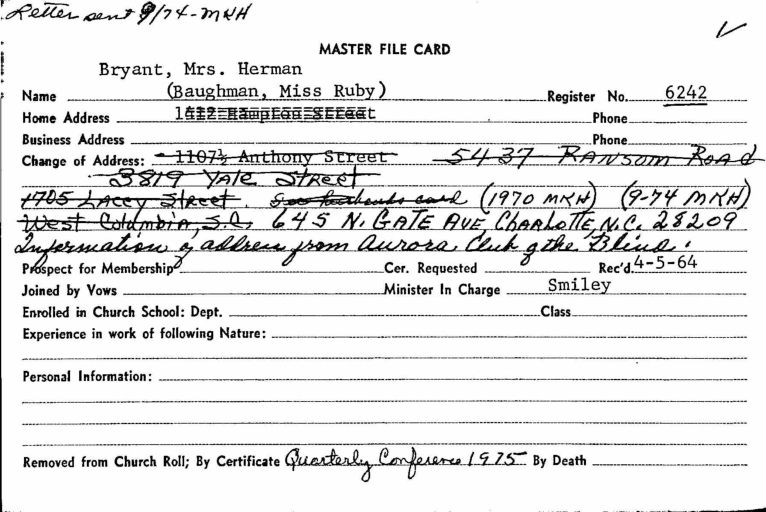 Letter sent 9/74-MKH
MASTER FILE CARD
Bryant, Mrs. Herman
Name (Baughman, Miss Ruby) Register No. 6242
Home Address Street Phone
Business Address Phone
Change of Address: 1107½ Anthony Street 5437 Ransom Road
3819 Yale Street
1705 Lacey Street. See husbands card (1970 MKH) (9-74 MKH)
West Columbia, S.C. 645 N. Gate Ave Charlotte, N.C. 28209
Information of address from Aurora Club of the Blind.
Prospect for Membership Cer. Requested Rec'd. 4-5-64
Joined by Vows Minister In Charge Smiley
Enrolled in Church School: Dept. Class
Experience in work of following Nature:
Personal Information:
Removed from Church Roll; By Certificate Quarterly Conference 1975 By Death